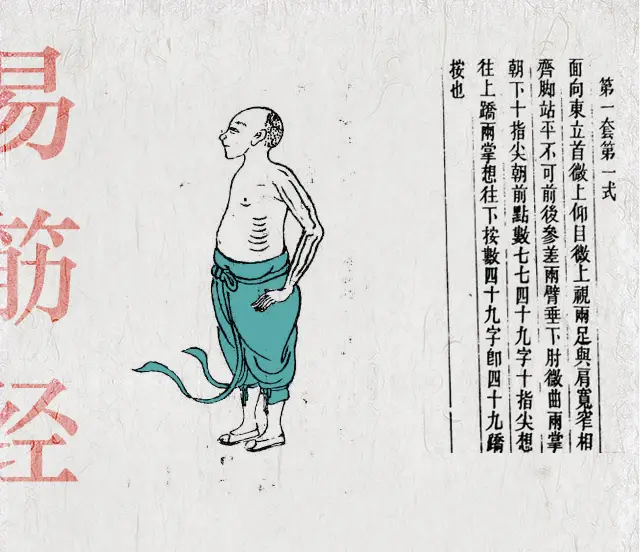 第一套第一式
面向東立首微上仰目微上視兩足與肩寬窄相
齊脚站平不可前後參差兩臂垂下肘微曲兩掌
朝下十指尖朝前點數七七四十九字十指尖想
往上蹻兩掌想往下按數四十九字卽四十九蹻
按也
易筋经